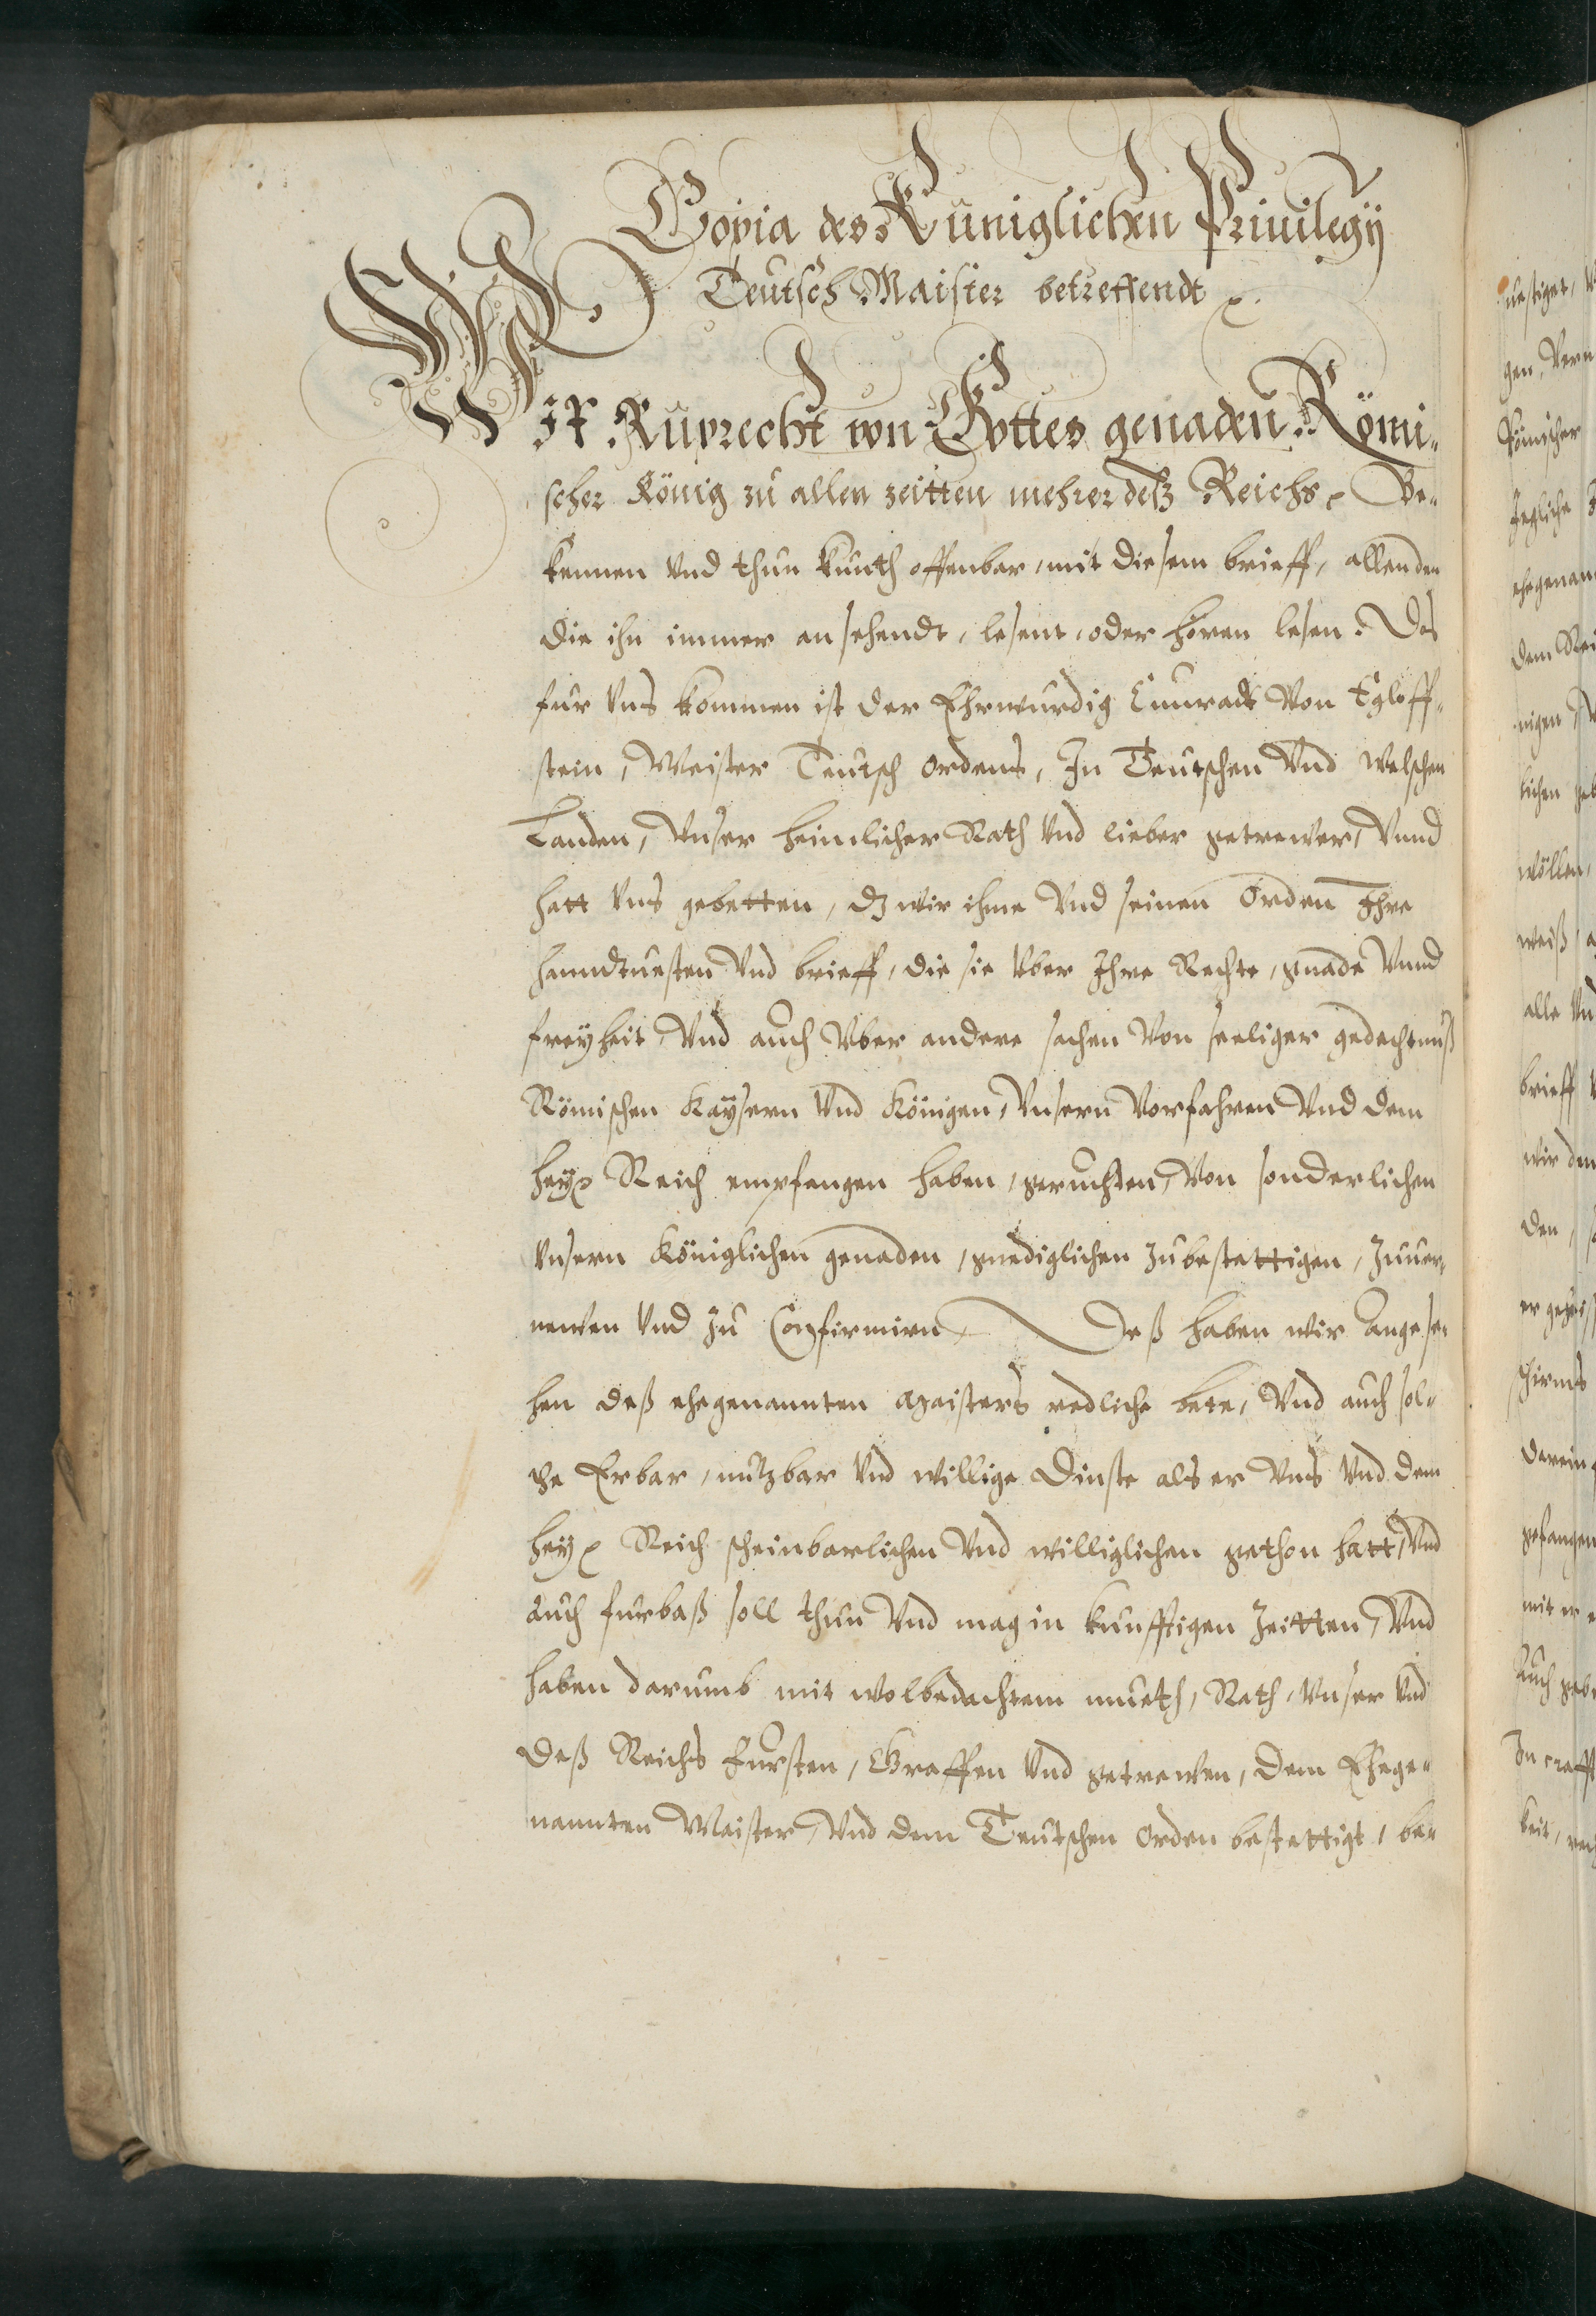 Copia des Küniglichen Priuilegÿ
Teutsch Maister betreffendt
WIR Ruprecht von Gottes genaden Römi-
scher König zu allen zeitten mehrer deß Reichs, Be-
kennen Vnd thun kunth offenbar, mit diesem brieff, allen den
die ihn immer an sehendt, lesent, oder hören lesen. Das
fur Vns kommen ist der Ehrwurdig Cunradt Von Egloff-
stein, Meister Teutsch ordens, In Teutschen Vnd welschen
Landen, Vnser heimlicher Rath Vnd lieber getrewer, Vnnd
hatt Vns gebetten, dz wir ihme Vnd seinen Orden Ihre
handtuesten Vnd brieff, die sie Vber Ihre Rechte, gnade Vnnd
freyheit, Vnd auch Vber andere sachen Von seeliger gedechtnuß
Römischen Kaysern Vnd Königen, Vnsern Vorfahren Vnd dem
heyl Reich empfangen haben, geruchten, Von sonderlichen
Vnsern Königlichen genaden, gnediglichen zubestettigen, Zuuer-
newen Vnd zu Confirmirn. Deß haben wir Angese-
hen deß ehegenannten Maisters redliche bete, Vnd auch sol-
che Erbar, nutzbar Vnd willige Dinste als er Vns Vnd dem
heyl Reich scheinbarlichen Vnd williglichen gethon hatt, Vnd
auch furbaß soll thun Vnd mag in kunfftigen Zeitten, Vnd
haben darumb mit wolbedachtem mueth, Rath, Vnser Vnd
deß Reichs fursten, Graffen Vnd getrewen, dem Ehege-
nannten Maister, Vnd dem Teutschen orden bestettigt, be-
uestiget,
gen, Vern
Römischer
Iegliche
ehegenan
dem Rei
nigen
lichen geb
wöllen,
weiß
alle Vn
brieff
wir den
den,
schirms
darein
gefangen
mit er
Auch gebe
In crafft
keit,